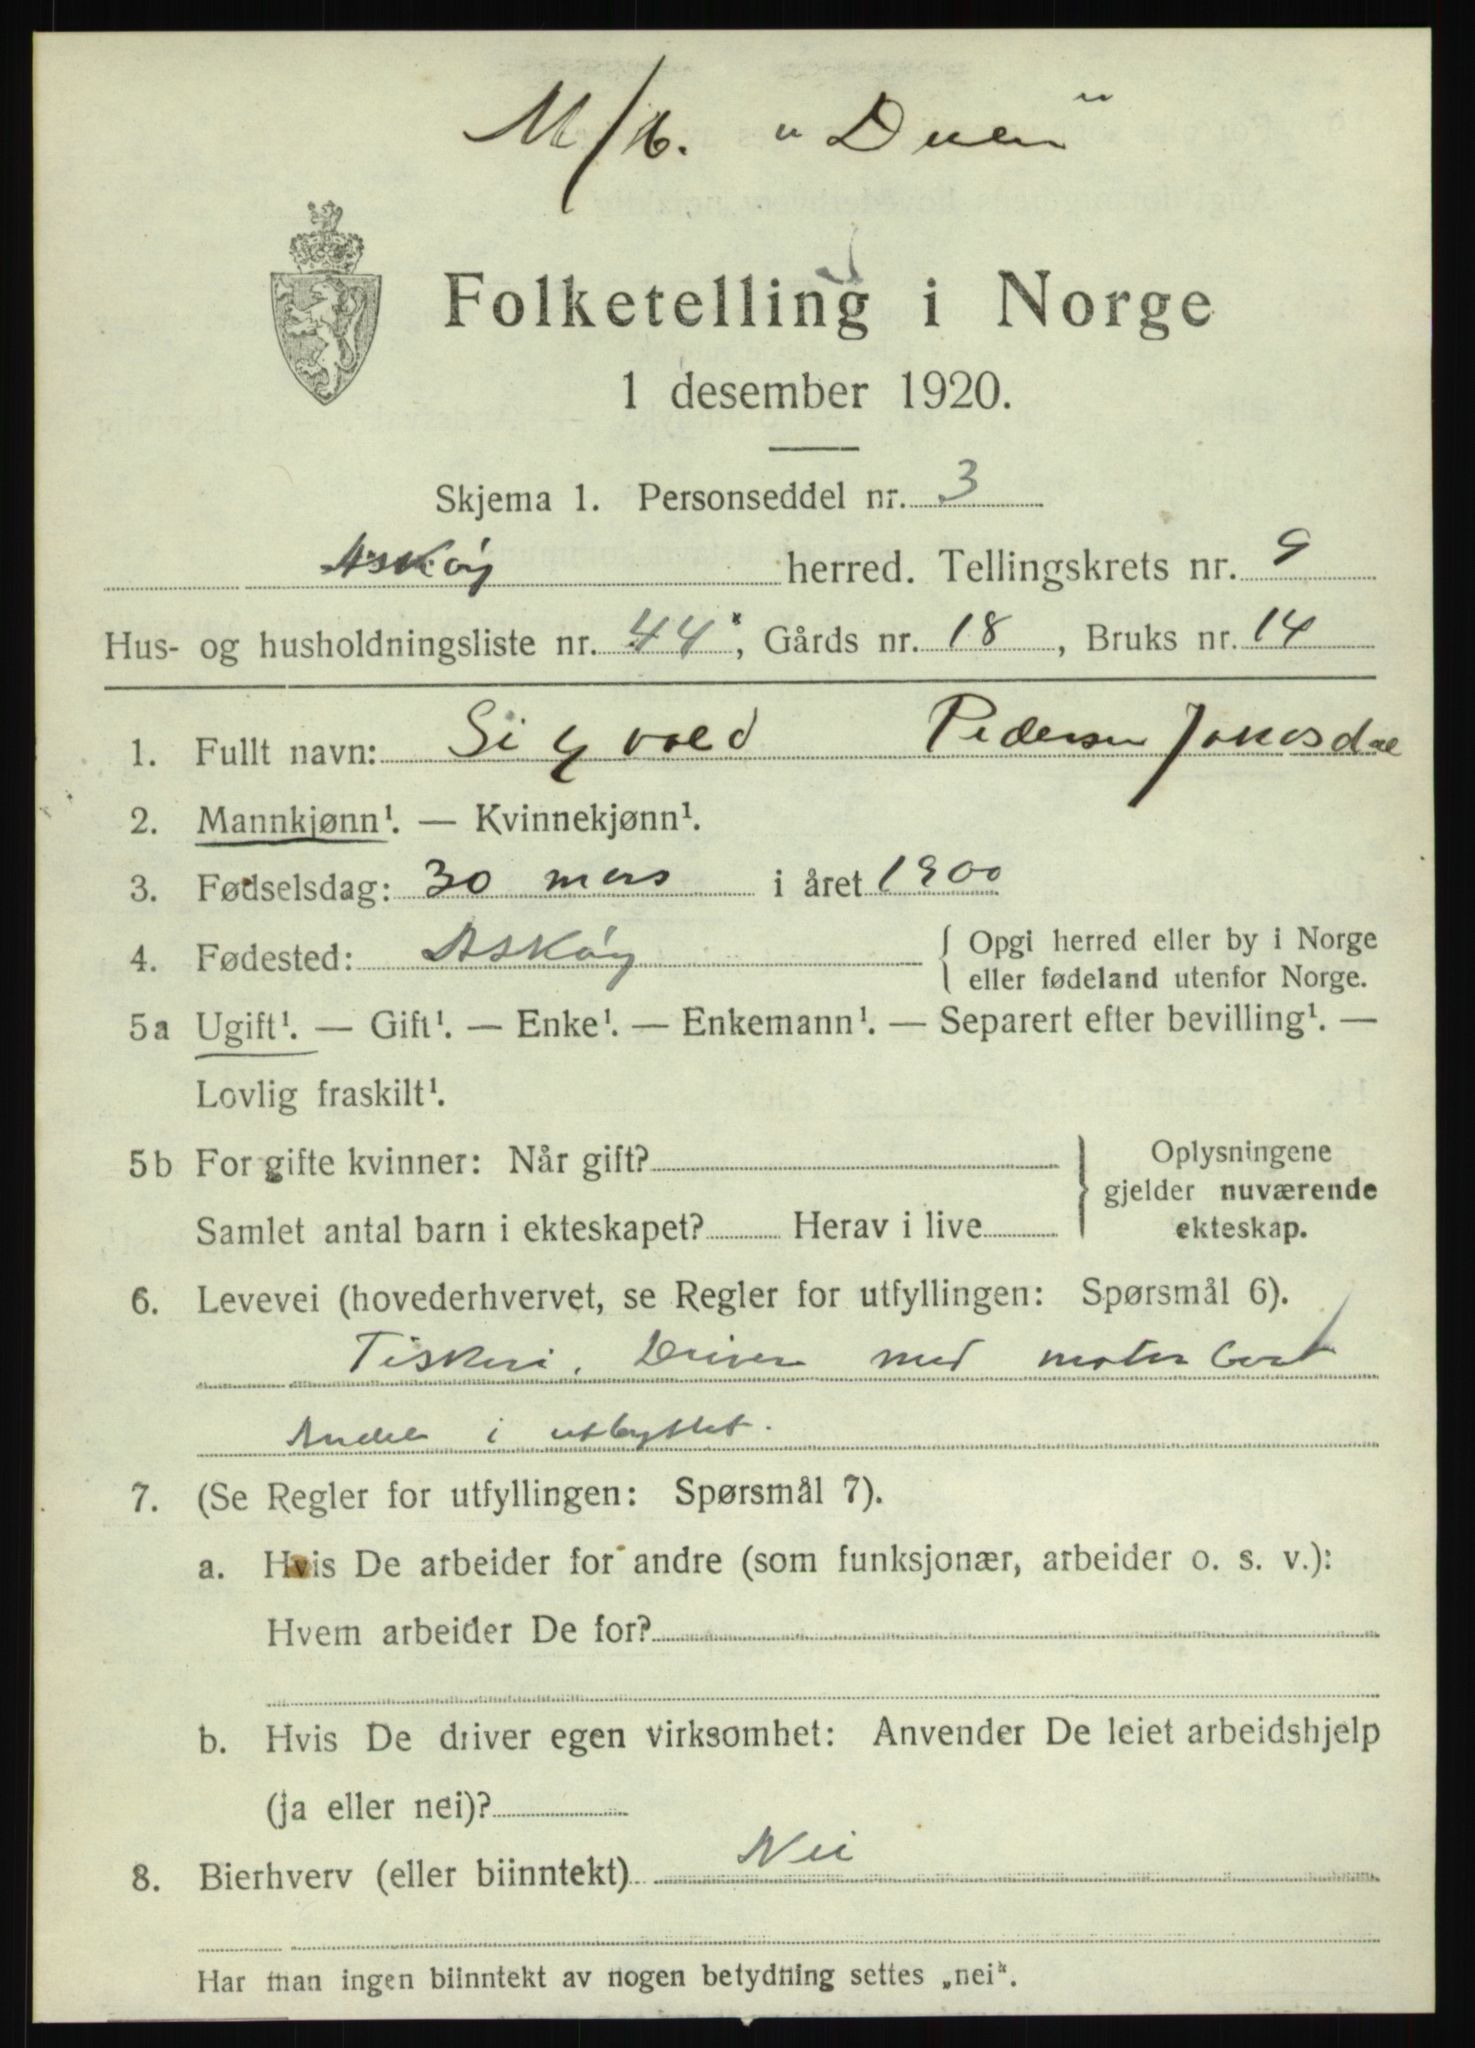 M/b. "Duen"
Folketelling i Norge
1 desember 1920.
Skjema 1. Personseddel nr. 3
Askøy herred. Tellingskrets nr. 9
Hus- og husholdningsliste nr. 44, Gårds nr. 18, Bruks nr. 14
1. Fullt navn: Sigvald Pedersen
2. Mannkjønn¹. — Kvinnekjønn¹.
3. Fødselsdag: 30 mars i året 1900
4. Fødested: Askøy { Opgi herred eller by i Norge
eller fødeland utenfor Norge.
5a Ugift¹. — Gift¹. — Enke¹. — Enkemann¹. — Separert efter bevilling¹. —
Lovlig fraskilt¹.
5b For gifte kvinner: Når gift? } Oplysningene
gjelder nuværende
Samlet antal barn i ekteskapet? Herav i live ekteskap.
6. Levevei (hovederhvervet, se Regler for utfyllingen: Spørsmål 6).
Fiskeri. Driver med motorbaat
Andel i utbyttet.
7. (Se Regler for utfyllingen: Spørsmål 7).
a. Hvis De arbeider for andre (som funksjonær, arbeider o. s. v.):
Hvem arbeider De for?
b. Hvis De driver egen virksomhet: Anvender De leiet arbeidshjelp
(ja eller nei)?
8. Bierhverv (eller biinntekt) Nei
Har man ingen biinntekt av nogen betydning settes „nei“.